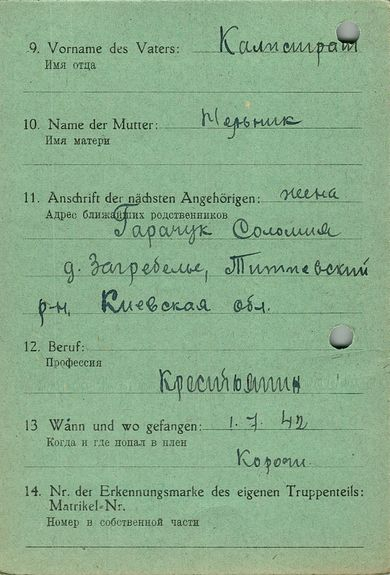 9. Vorname des Vaters: Калистрат
Имя отца
10. Name der Mutter: Мельник
Имя матери
11. Anschrift der nächsten Angehörigen: жена
Адрес ближайших родственников
Гарачук Соломия
д. Загребелье,
р-н, Киевская обл.
12. Beruf:
Профессия
Кресītьянин
13 Wann und wo gefangen: 1. 7. 42
Когда и где попал в плен
Корочи
14. Nr. der Erkennungsmarke des eigenen Truppenteils:
Matrikel-Nr.
Номер в собственной части